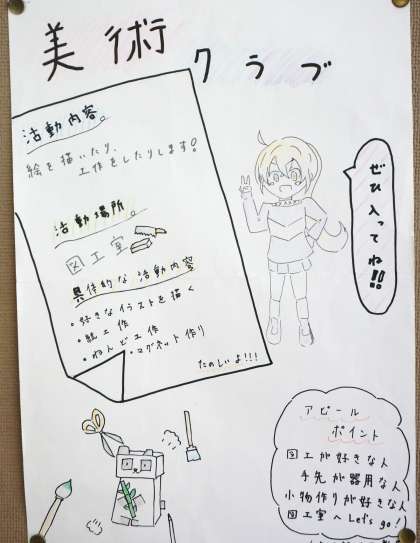 美術
クラブ
活動内容。
絵を描いたり、
工作をしたりします!
活動場所。
図工室
具体的な活動内容
・好きなイラストを描く
・紙工作
・ねんど工作
・マグネット作り
たのしいよ!!!
ぜひ入ってね!!
アピール
ポイント
図工が好きな人
手先が器用な人
小物作りが好きな人
図工室へLet's go!